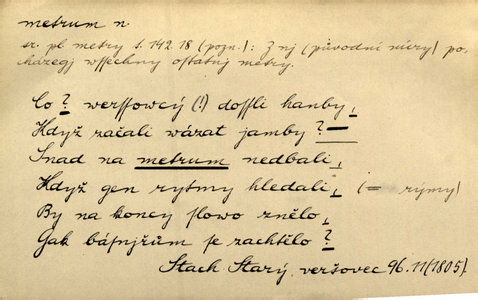 metrum n.
sr. pl metry s. 142 18 (pozn.): Z nj (původní míry) po-
cházegj wssechny ostatnj metry.
Co ? werssowcý (!) dossli hanby,
Když začali wázat jamby ? —
Snad na metrum nedbali,
Když gen rytmy hledali, (= rýmy)
By na koncy slowo znělo,
Gak básnjřům se zachtělo ?
Stach Starý veršovec 96. 11 (1805).